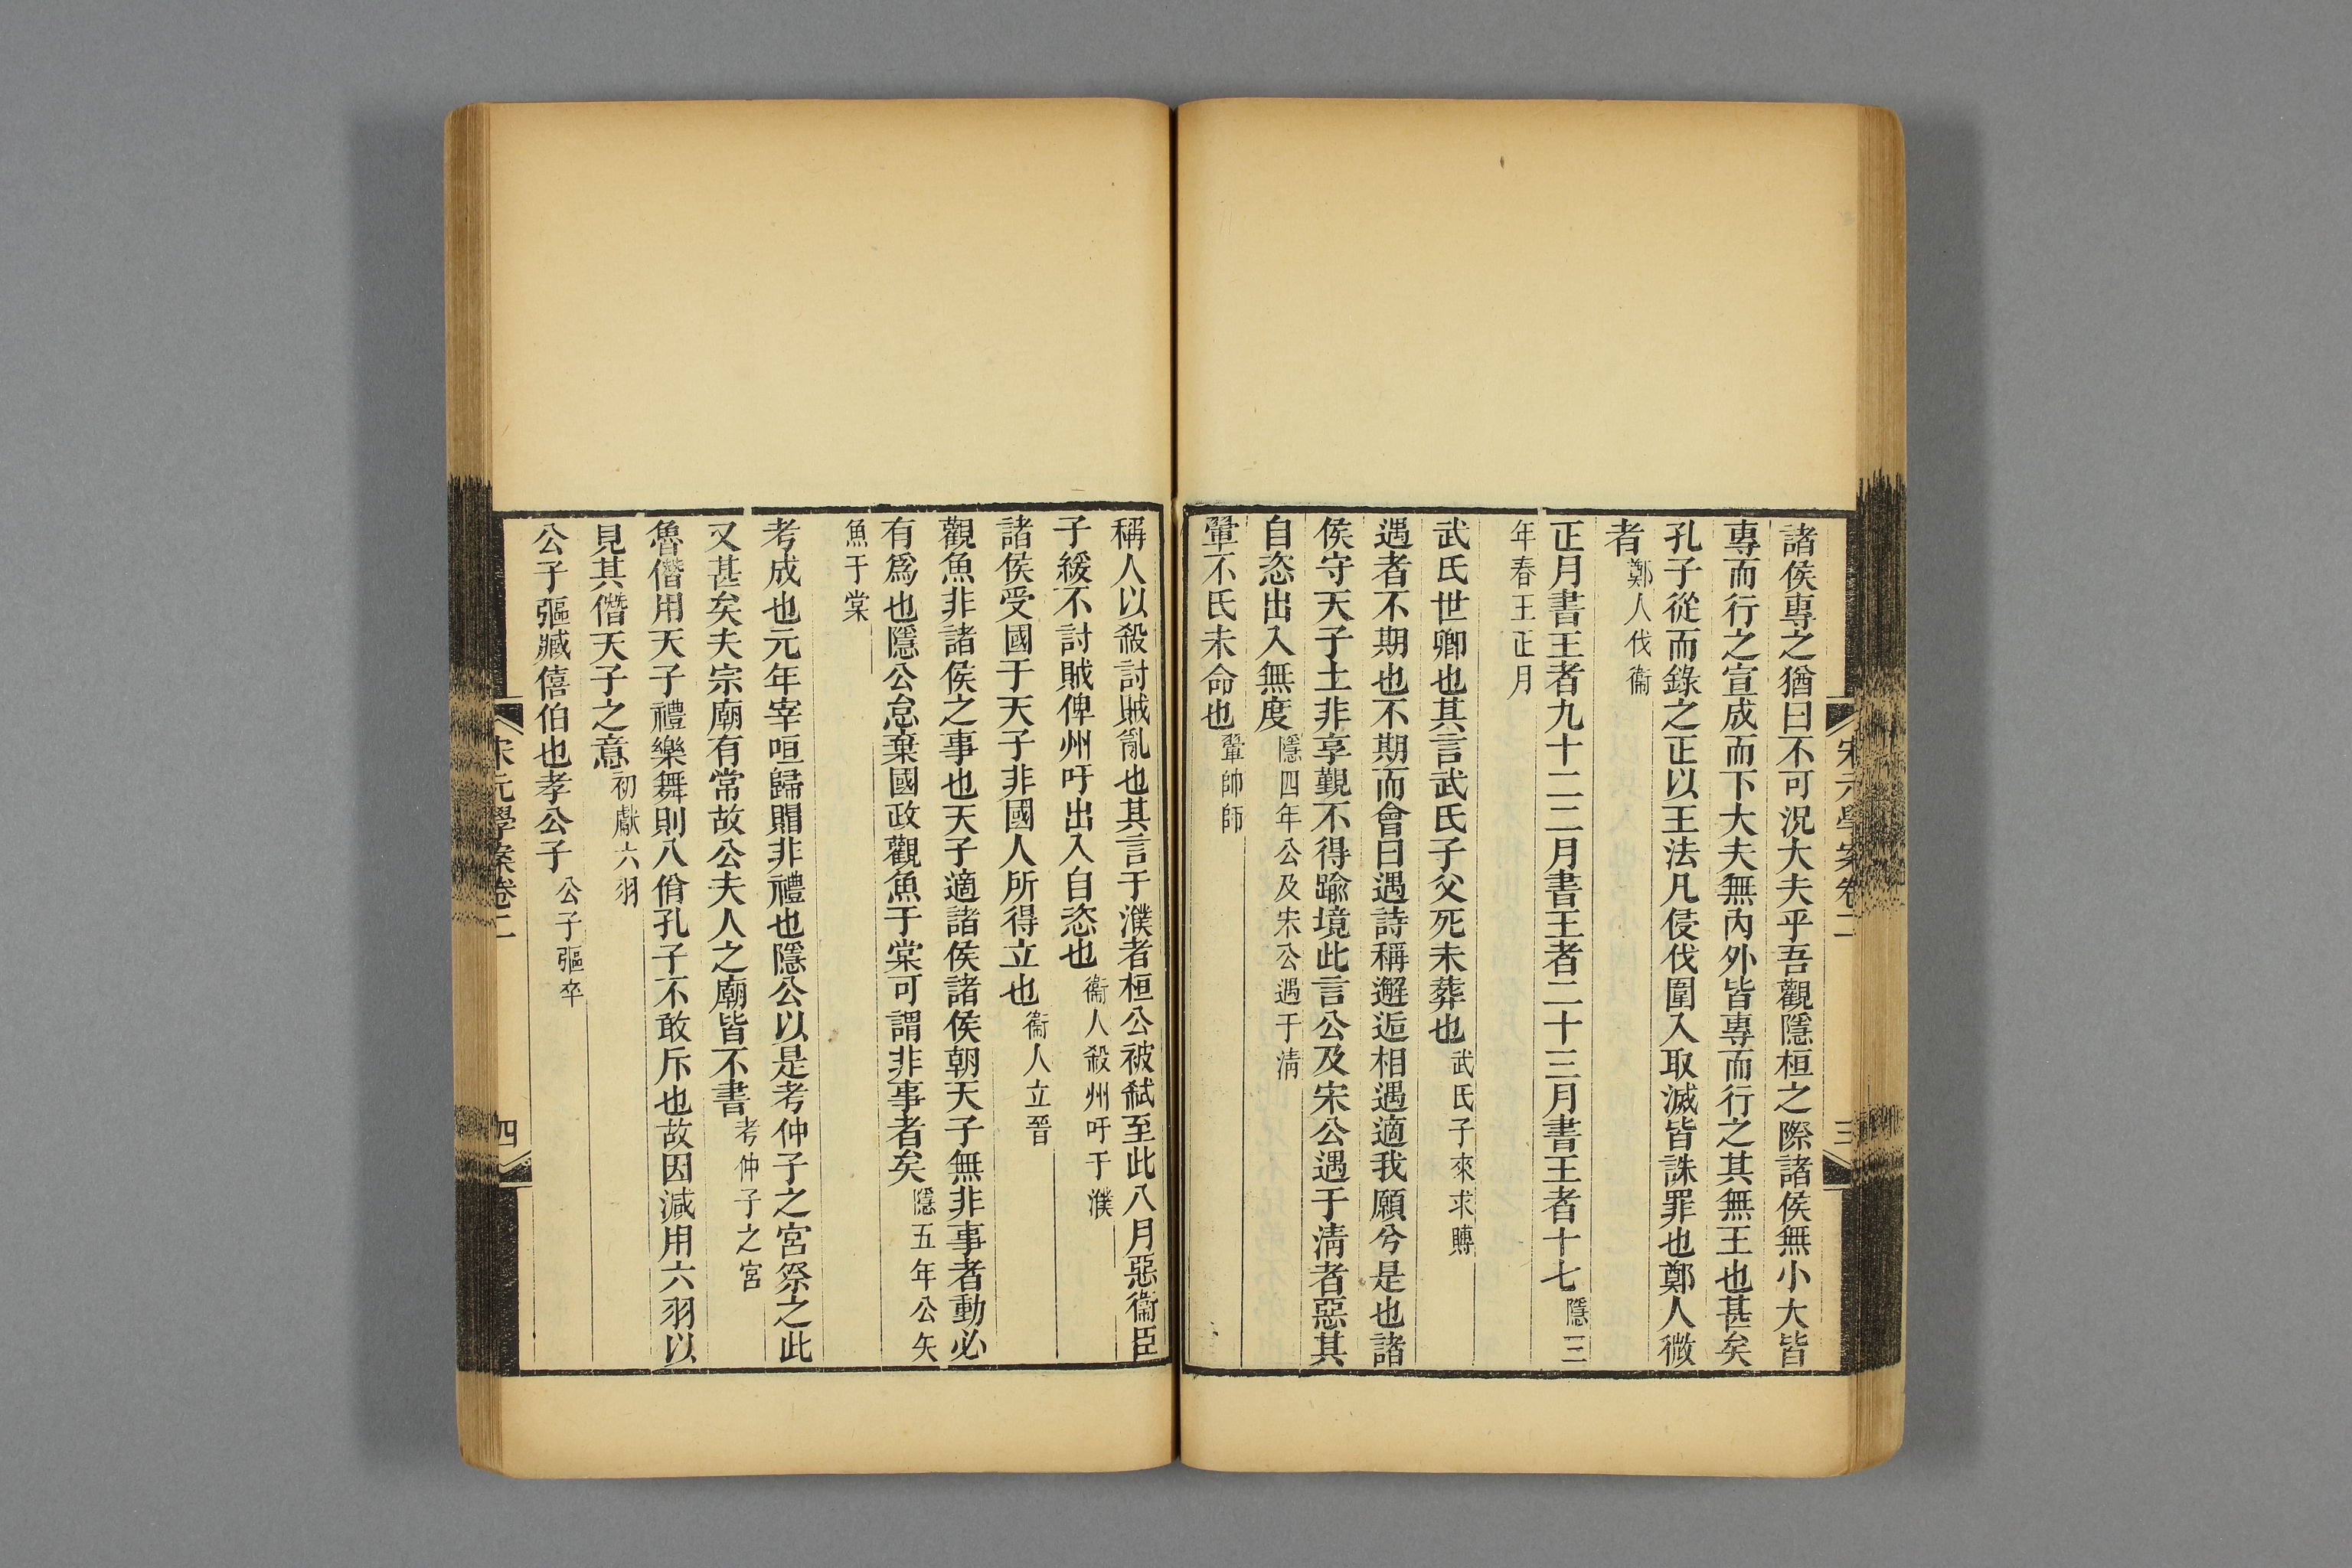 宋元學案卷二
三
諸侯專之猶曰不可況大夫乎吾觀隱桓之際諸侯無小大皆
專而行之宣成而下大夫無內外皆專而行之其無王也甚矣
孔子從而錄之正以王法凡侵伐圍入取滅皆誅罪也鄭人微
者鄭人伐衞
正月書王者九十二二月書王者二十三月書王者十七隱三
年春王正月
武氏世卿也其言武氏子父死未葬也武氏子來求賻
遇者不期也不期而會曰遇詩稱邂逅相遇適我願兮是也諸
侯守天子土非享覲不得踰境此言公及宋公遇于淸者惡其
自恣出入無度隱四年公及宋公遇于淸
翬不氏未命也翬帥師
稱人以殺討賊亂也其言于濮者桓公被弑至此八月惡衞臣
子緩不討賊俾州吁出入自恣也衞人殺州吁于濮
諸侯受國于天子非國人所得立也衞人立晉
觀魚非諸侯之事也天子適諸侯諸侯朝天子無非事者動必
有爲也隱公怠棄國政觀魚于棠可謂非事者矣隱五年公矢
魚于棠
考成也元年宰咺歸賵非禮也隱公以是考仲子之宮祭之此
又甚矣夫宗廟有常故公夫人之廟皆不書考仲子之宮
魯僭用天子禮樂舞則八佾孔子不敢斥也故因減用六羽以
見其僭天子之意初獻六羽
公子彄臧僖伯也孝公子公子彄卒
宋元學案卷二
四